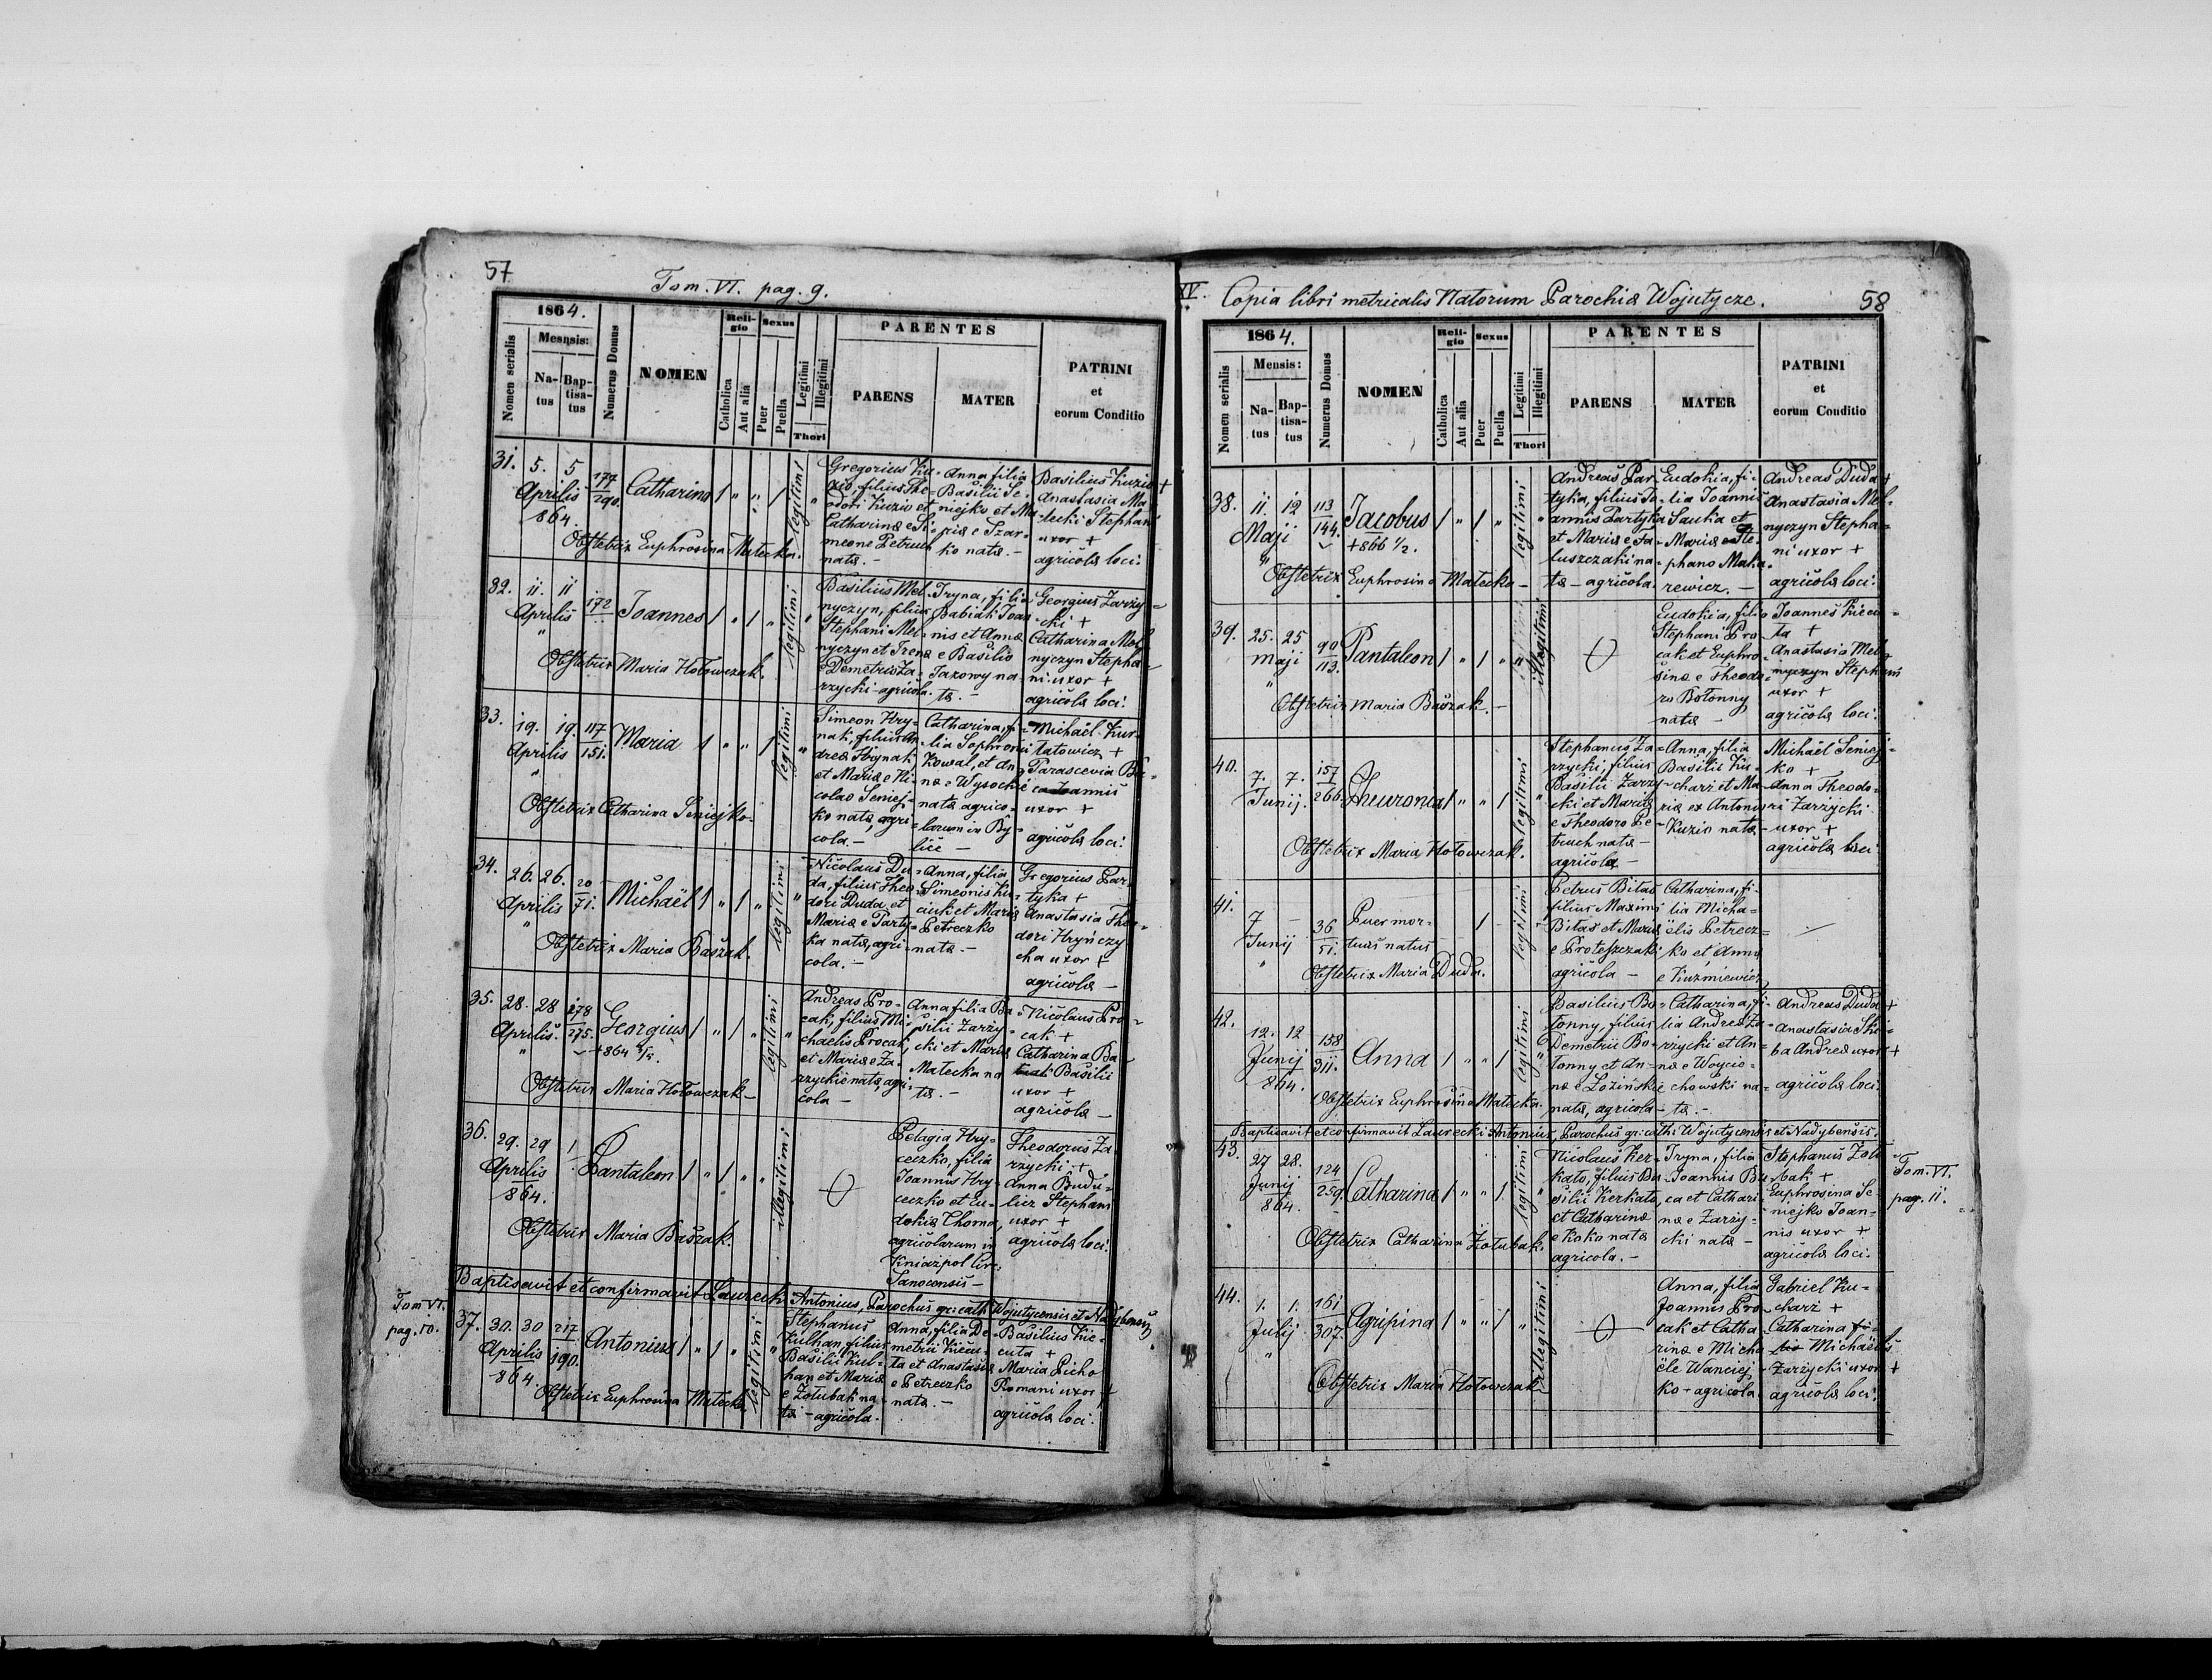 57
Tom. VI. pag. 9.
1864.
Mesnsis:
Nomen serialis
Na-
tus
Bap-
tisa-
tus
Numerus Domus
NOMEN
Reli-
gio
Catholica
Aut alia
Sexus
Puer
Puella
Legitimi
Illegitimi
Thori
PARENTES
PARENS
MATER
PATRINI
et
eorum Conditio
31. 5. 5 177/290.
Aprilis
864.
Catharina
legitimi
Gregorius Ku-
zio, filius The-
odori Kuzio et
Catharinæ e Si-
meone Petruch
natæ. -
Anna filia
Basilii Se-
niejko et Ma-
riæ e Szar-
ko nata. -
Basilius Kuzio +
Anastasia Ma-
lecki Stephani
uxor +
agricolæ loci.
Obstetrix Euphrosina Matecka.
32. 11. 11 172
Aprilis
"
Joannes
legitimi
Basilius Mel-
nyczyn, filius
Stephani Mel-
nyczyn et Irenæ
e Demetrio Za-
rzycki - agricola.
Iryna, filia
Babiak Joan-
nis et Annæ
e Basilio
Jazowy na-
ta. -
Georgius Zarzy-
cki +
Catharina Mel-
nyczyn Stepha-
ni uxor +
agricolæ loci.
Obstetrix Maria Hołowczak.
33. 19. 19. 117/151.
Aprilis
"
Maria
legitimi
Simeon Hry-
nak, filius An-
dreæ Hrynak,
et Mariæ e Ni-
colao Seniej-
ko natæ, agri-
cola. -
Catharina, fi-
lia Sophronii
Kowal, et An-
næ e Wysockie
nata agrico-
larum ex By-
lice -
Michaël Kur-
tatowicz +
Parascevia
Joannis
uxor +
agricolæ loci.
Obstetrix Catharina Seniejko.
34. 26. 26. 20/71.
Aprilis
"
Michaël
legitimi
Nicolaus Du-
da, filius Theo-
dori Duda et
Mariæ e Party-
ka natæ, agri-
cola. -
Anna, filia
Simeonis Ku-
ciuk et Mariæ
Petreczko
nata. -
Gregorius Par-
tyka +
Anastasia Theo-
dori Hryńczy
cha uxor +
agricolæ -
Obstetrix Maria Baszak.
35. 28. 28 278/275.
Aprilis.
"
Georgius
+ 864
legitimi
Andreas Pro-
cak, filius Mi-
chaelis Procak,
et Mariæ e Za-
rzyckie natæ, agri-
cola -
Anna filia Ba-
silii Zarzy-
cki et Mariæ
Matecka na
ta. -
Nicolaus Pro-
cak +
Catharina Ba-
Basilii
uxor +
agricolæ -
Obstetrix Maria Hołowczak -
36. 29. 29 1.
Aprilis
864.
Pantaleon
illegitimi
Pelagia Hry-
ceczko, filia
Joannis Hry-
ceczko et Eu-
dokiæ Chorna,
agricolarum in
Kniazpol Cir:
Sanocensis -
Theodorus Za
rzycki +
Anna Budu-
licz Stephani
uxor +
agricolæ loci.
Obstetrix Maria Baszak.
Baptisavit et confirmavit Laurecki Antonius, Parochus gr: cath: Wojutycensis et Nadybensis
Tom VI.
pag. 10.
37. 30. 30 217/190.
Aprilis
864.
Antonius
legitimi
Stephanus
Kulhan, filius
Basilii Kul-
han et Mariæ
e Zołubak na-
tæ - agricola.
Anna, filia De-
metrii Kicu-
ta et Anastasiæ
e Petreczko
nata. -
Basilius Kie-
cuta +
Maria Picho
Romani uxor +
agricolæ loci.
Obstetrix Euphrosina Matecka
IV. Copia libri metricalis Natorum Parochiæ Wojutycze.
58
1864.
Mensis:
Nomen serialis
Na-
tus
Bap-
tisa-
tus
Numerus Domus
NOMEN
Reli-
gio
Catholica
Aut alia
Sexus
Puer
Puella
Legitimi
Illegitimi
Thori
PARENTES
PARENS
MATER
PATRINI
et
eorum Conditio
38. 11. 12 113/144.
Maji
"
Jacobus
+ 866 1/2.
legitimi
Andreas Par-
tyka, filius Jo-
annis Partyka
et Mariæ e Ja-
luszczaki na-
tæ - agricola.
Eudokia, fi-
lia Joannis
Sauka et
Mariæ e Ste-
phano Maka-
rewicz. -
Andreas Duda +
Anastasia Mel-
nyczyn Stepha-
ni uxor +
agricolæ loci.
Obstetrix Euphrosina Matecka -
39. 25. 25 90/113.
Maji
"
Pantaleon
illegitimi
Eudokia, filia
Stephani Pro-
cak et Euphro-
sinæ e Theodo-
ro Bołonny
nata -
Joannes Kicu-
ta +
Anastasia Mel-
nyczyn Stephani
uxor +
agricolæ loci.
Obstetrix Maria Baszak. -
40. 7. 7. 157/266.
Junij.
Theuronia
legitimi
Stephanus Za-
rzycki, filius
Basilii Zarzy-
cki et Mariæ
e Theodoro Pe-
truch natæ -
agricola -
Anna, filia
Basilii Ku-
charz et Ma-
riæ ex Antonio
Kuzio nata -
Michaël Seniej-
ko +
Anna Theodo-
ri Zarzycki
uxor +
agricolæ loci
Obstetrix Maria Hołowczak.
41. 7 - 36/51.
Junij
"
Puer mor-
tuus natus
legitimi
Petrus Bitas
filius Maximi
Bitas et Mariæ
e Proteszczaki
agricola -
Catharina, fi-
lia Micha-
ëlis Petrecz-
ko et Annæ
e Kuzmiewicz
Obstetrix Maria Duda.
42. 12. 12 158/311.
Junij
864.
Anna
legitimi
Basilius Bo-
łonny, filius
Demetrii Bo-
łonny et An-
næ e Łozińskie
natæ, agricola -
Catharina, fi-
lia Andreæ Za-
rzycki et An-
næ e Woycie-
chowski na-
ta. -
Andreas Duda +
Anastasia Ski-
ba Andreæ uxor +
agricolæ loci.
Obstetrix Euphrosina Matecka.
Baptisavit et confirmavit Laurecki Antonius, Parochus gr: cath: Wojutycensis et Nadybensis.
43. 27 28. 124/259.
Junij
864.
Catharina
legitimi
Nicolaus Ker-
kato, filius Ba-
silii Kerkato,
et Catharinæ
e Koko natæ
agricola. -
Iryna, filia
Joannis Bu-
ca et Cathari-
næ e Zarzy-
cki nata -
Stephanus Zołu-
bak +
Euphrosina Se-
niejko Joan-
nis uxor +
agricolæ loci.
Tom. VI.
pag. 11.
Obstetrix Catharina Zołubak.
44. 1. 1. 161/307.
Julij
"
Agripina
illegitimi
Anna, filia
Joannis Pro-
cak et Catha-
rinæ e Micha
ële Waniej-
ko - agricola
Gabriel Ku-
charz +
Catharina
Michaëlis
Zarzycki uxor +
agricolæ loci.
Obstetrix Maria Hołowczak